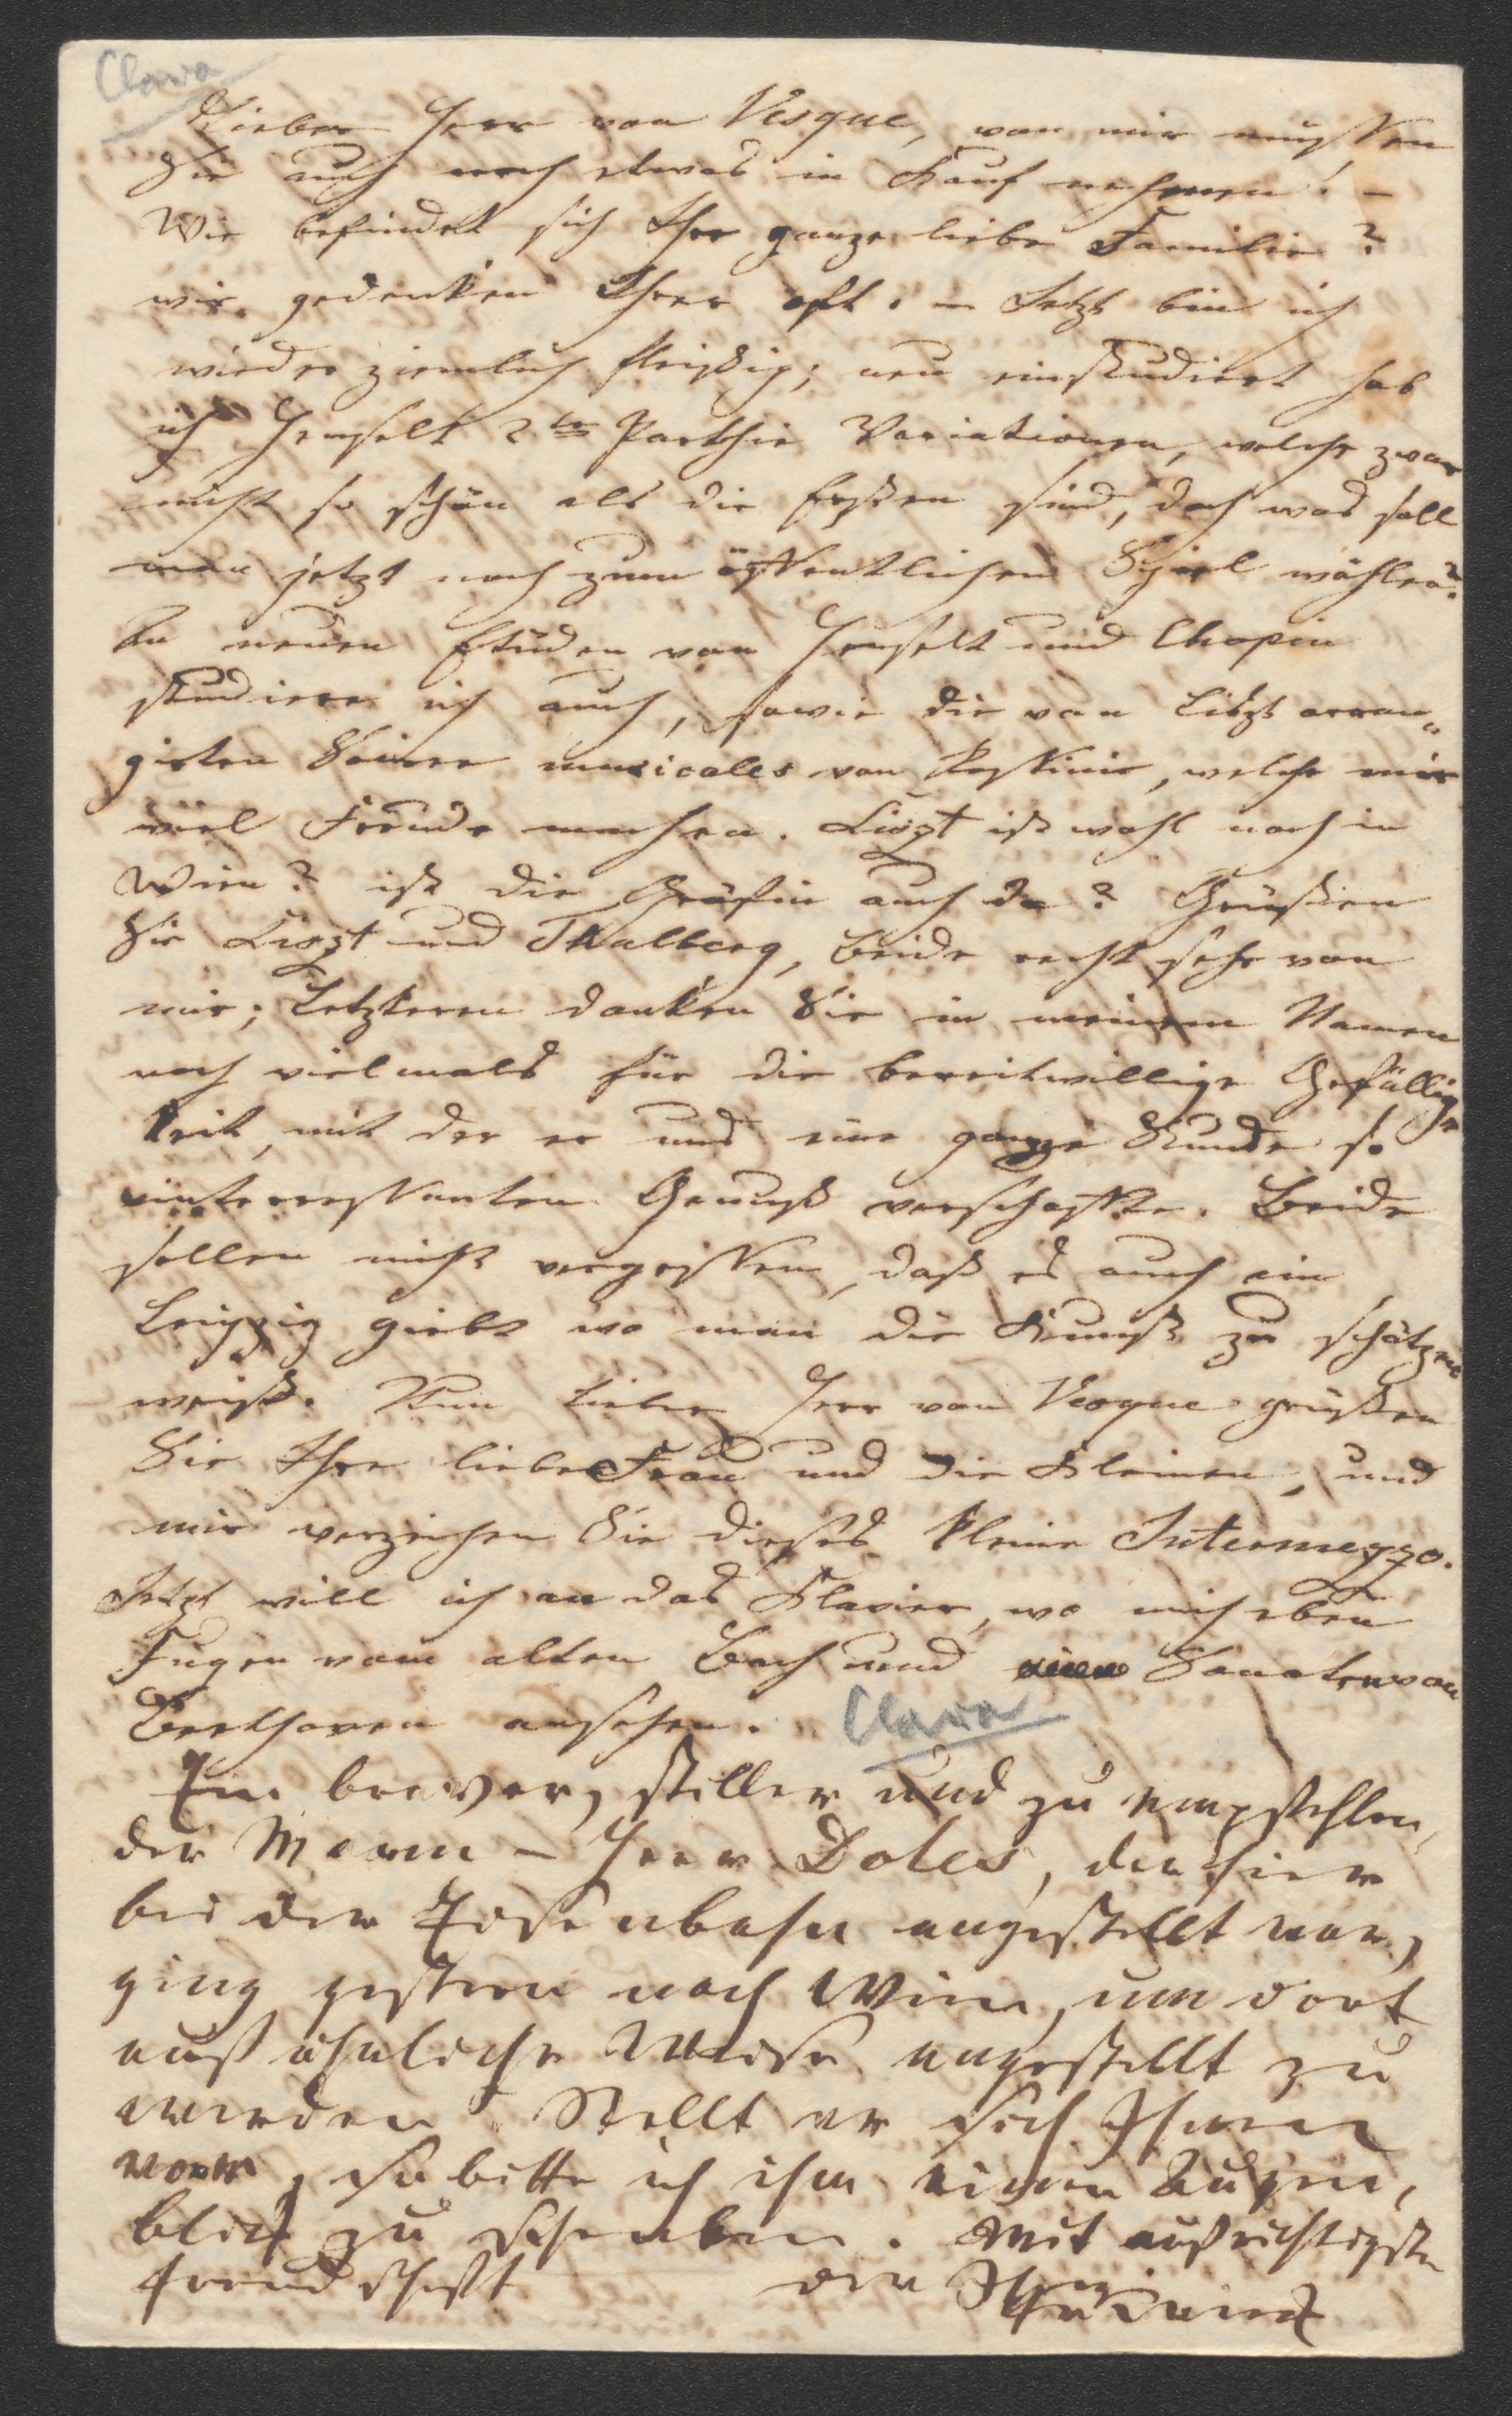 Clara
Lieber Herr von Vesque, von mir müssen
Sie auch noch etwas in Kauf nehmen! –
Wie befindet sich Ihre ganze liebe Familie?
wir gedenken Ihrer oft. – Jetzt bin ich
wieder ziemlich fleißig; neu einstudiert hab
ich Henselt 2te Parthie Variationen, welche zwar
nicht so schön als die Ersten sind, doch was soll
man jetzt noch zum öffentlichen Spiel wählen?
Die neuen Etüden von Henselt und Chopin
studiere ich auch, sowie die von Liszt arran-
girten Soiree musicales von Rossini, welche mir
viel Freude machen. Liszt ist wohl noch in
Wien? ist die Gräfin auch da? Grüßen
Sie Liszt und Thalberg, beide recht sehr von
mir; Letzteren danken Sie in meinem Namen
noch vielmals für die bereitwillige Gefällig-
keit, mit der er uns eine ganze Stunde so
interressanten Genuß verschaffte. Beide
sollen nicht vergessen, daß es auch ein
Leipzig giebt wo man die Kunst zu schätzen
weiß. Nun lieber Herr von Vesque grüßen
Sie Ihre liebe Frau und die Kleinen, und
mir verzeihen Sie dieses kleine Intermezzo.
Jetzt will ich an das Klavier, wo mich eben
Fugen vom alten Bach und eine Sonate von
Beethoven ansehen. Clara
Ein braver, stiller und zu empfehlen-
der Mann – Herr Doles, der hier
bei der Eisenbahn angestellt war,
ging gestern nach Wien, um dort
auf ähnliche Weise angestellt zu
werden. Stellt er sich Ihnen
vor, so bitte ich ihm einen Augen-
blick zu schenken. Mit aufrichtigster
Freundschaft der Ihrige